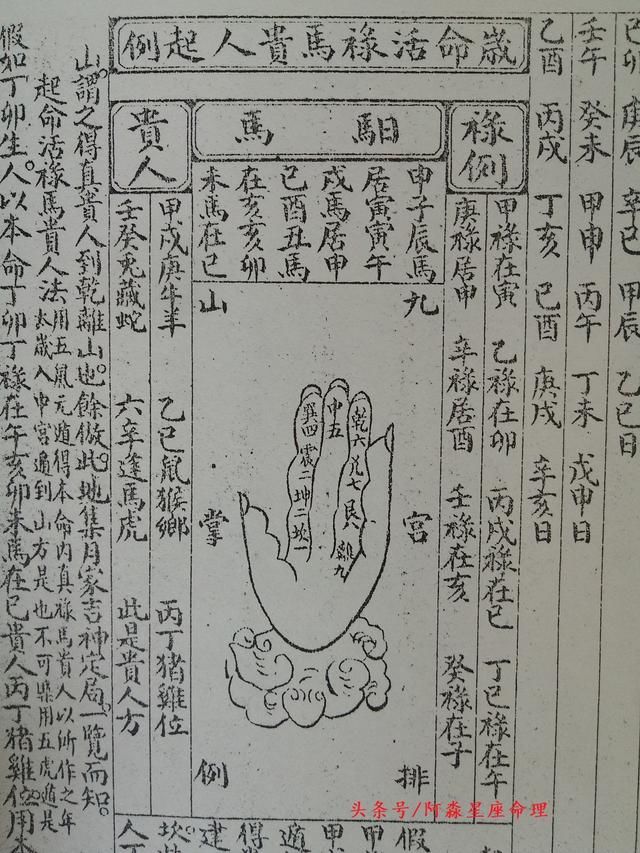 己卯 庚辰 辛巳 甲辰 乙巳日
壬午 癸未 甲申 丙午 丁未 戊申日
乙酉 丙戌 丁亥 己酉 庚戌 辛亥日
歲命活祿馬貴人起例
祿例
甲祿在寅 乙祿在卯 丙戊祿在巳 丁巳祿在午
庚祿居申 辛祿居酉 壬祿在亥 癸祿在子
馹馬
申子辰馬
居寅寅午
戌馬居申
巳酉丑馬
在亥亥卯
未馬在巳
九宮排
山掌例
乾六兌七艮離九
中五
巽四震三坤二坎一
貴人
甲戊庚牛羊 乙巳鼠猴鄉 丙丁猪雞位
壬癸兎藏蛇 六辛逢馬虎 此是貴人方
山謂之得真貴人到乾離山也。餘倣此。地集月家吉神定局。一覽而知。
起命活祿馬貴人法
用五鼠元遁得本命内真祿馬貴人以所作之年
太歲入中宮遁到山方是也不可槩用五虎遁是
假如丁卯生人。以本命丁卯丁祿在午亥卯未馬在巳貴人丙丁猪雞位用本
头条号/阿淼星座命理